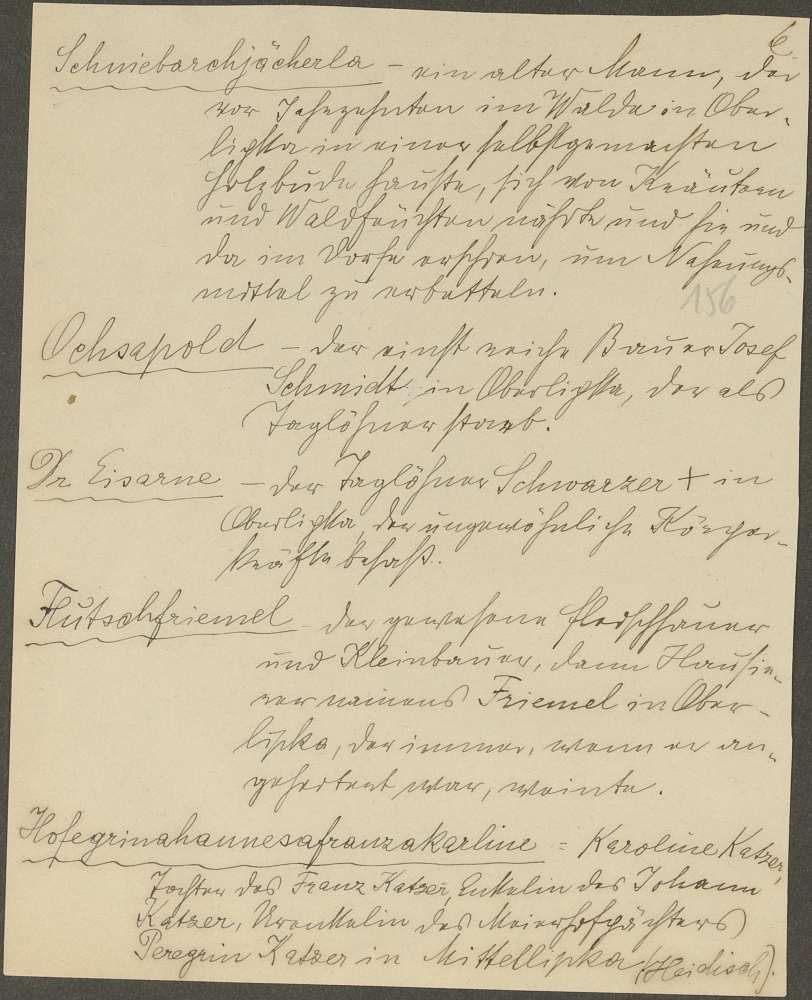 6
Schniebarchjächerla - ein alter Mann, der
vor Jahrzehnten im Walde in Ober-
lipka in einer selbstgemachten
Holzbude hauste, sich von Kräutern
und Waldfrüchten nährte und hie und
da im Dorfe erschien, um Nahrungs-
mittel zu erbetteln.
156
Ochsapold - der einst reiche Bauer Josef
Schmidt in Oberlipka, der als
Taglöhner starb.
Dr Eisarne - der Taglöhner Schwarzer + in
Oberlipka, der ungewöhnliche Körper-
kräfte besaß.
Flutschfriemel - der gewesene Fleischhauer
und Kleinbauer, dann Hausie-
rer namens Friemel in Ober-
lipka, der immer, wenn er an-
geheitert war, weinte.
Hofegrinahannesafranzakarline = Karoline Katzer,
Tochter des Franz Katzer, Enkelin des Johann
Katzer, Urenkelin des Meierhofpächters
Peregrin Katzer in Mittellipka (Heidisch).